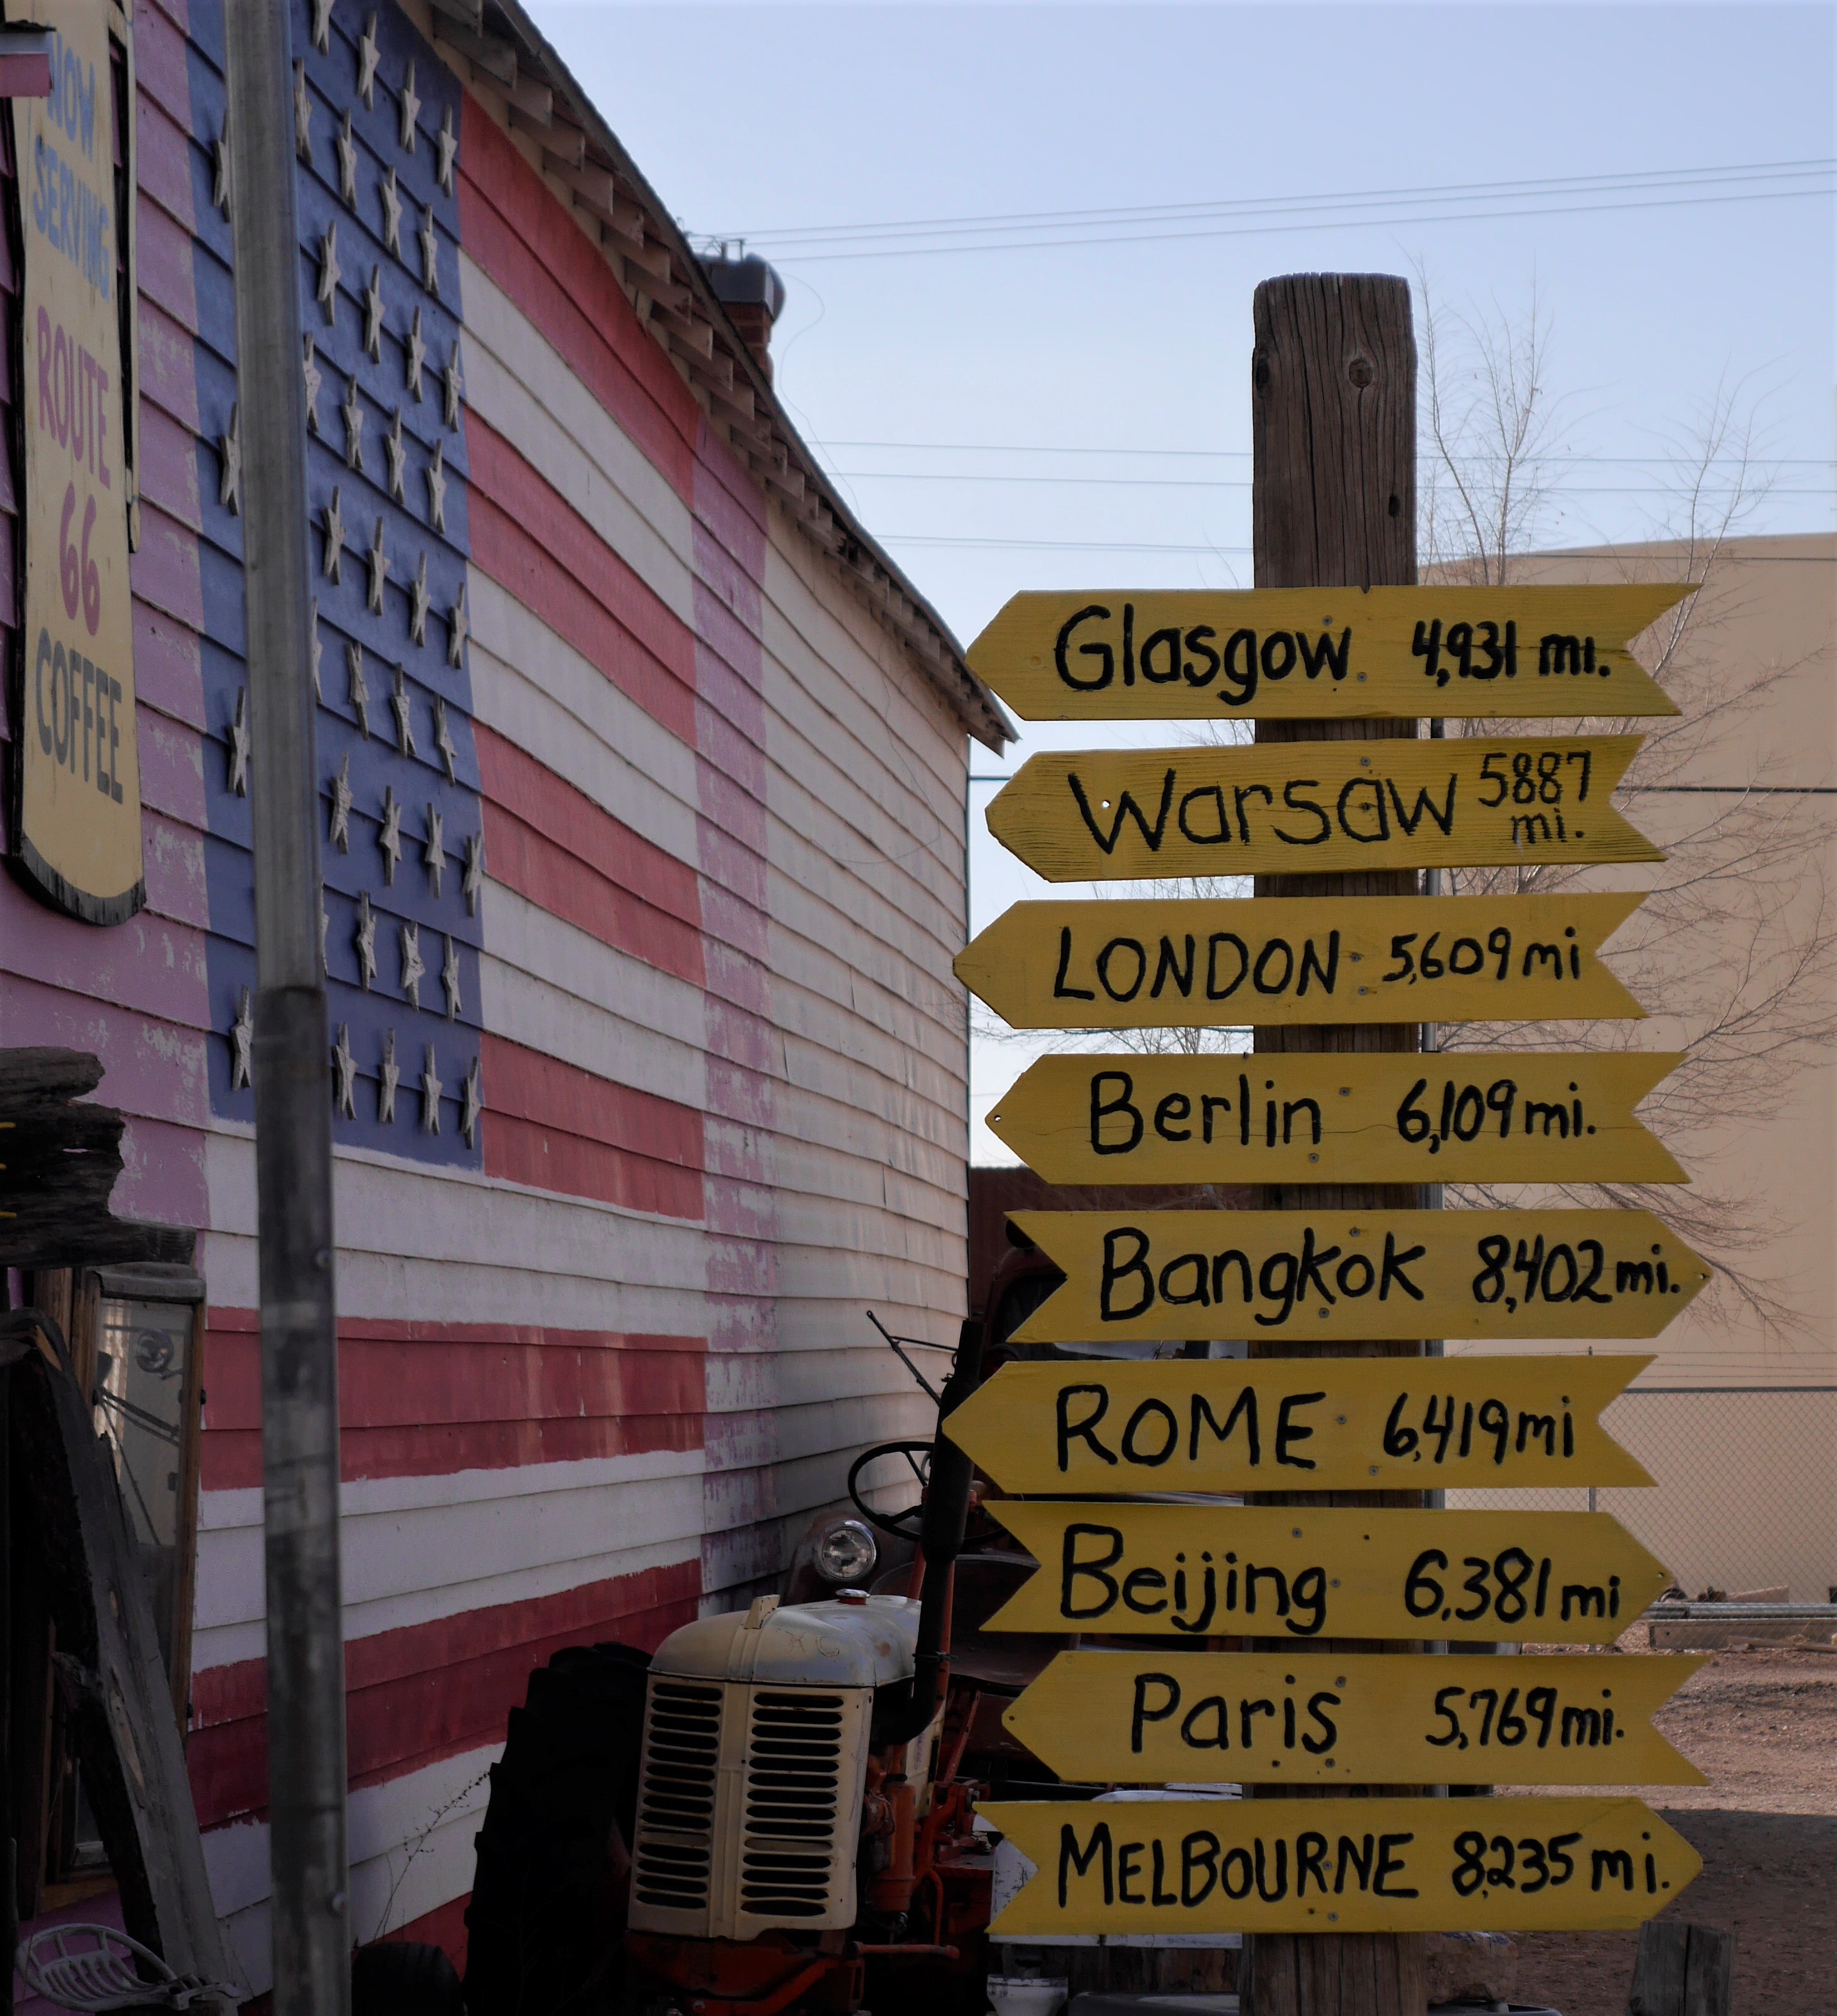 NOW
SERVING
ROUTE
66
COFFEE
Glasgow 4,931 mi.
Warsaw 5887
mi.
LONDON 5,609 mi
Berlin 6,109 mi.
Bangkok 8,402 mi.
ROME 6,419 mi
Beijing 6,381 mi
Paris 5,769 mi.
MELBOURNE 8,235 mi.